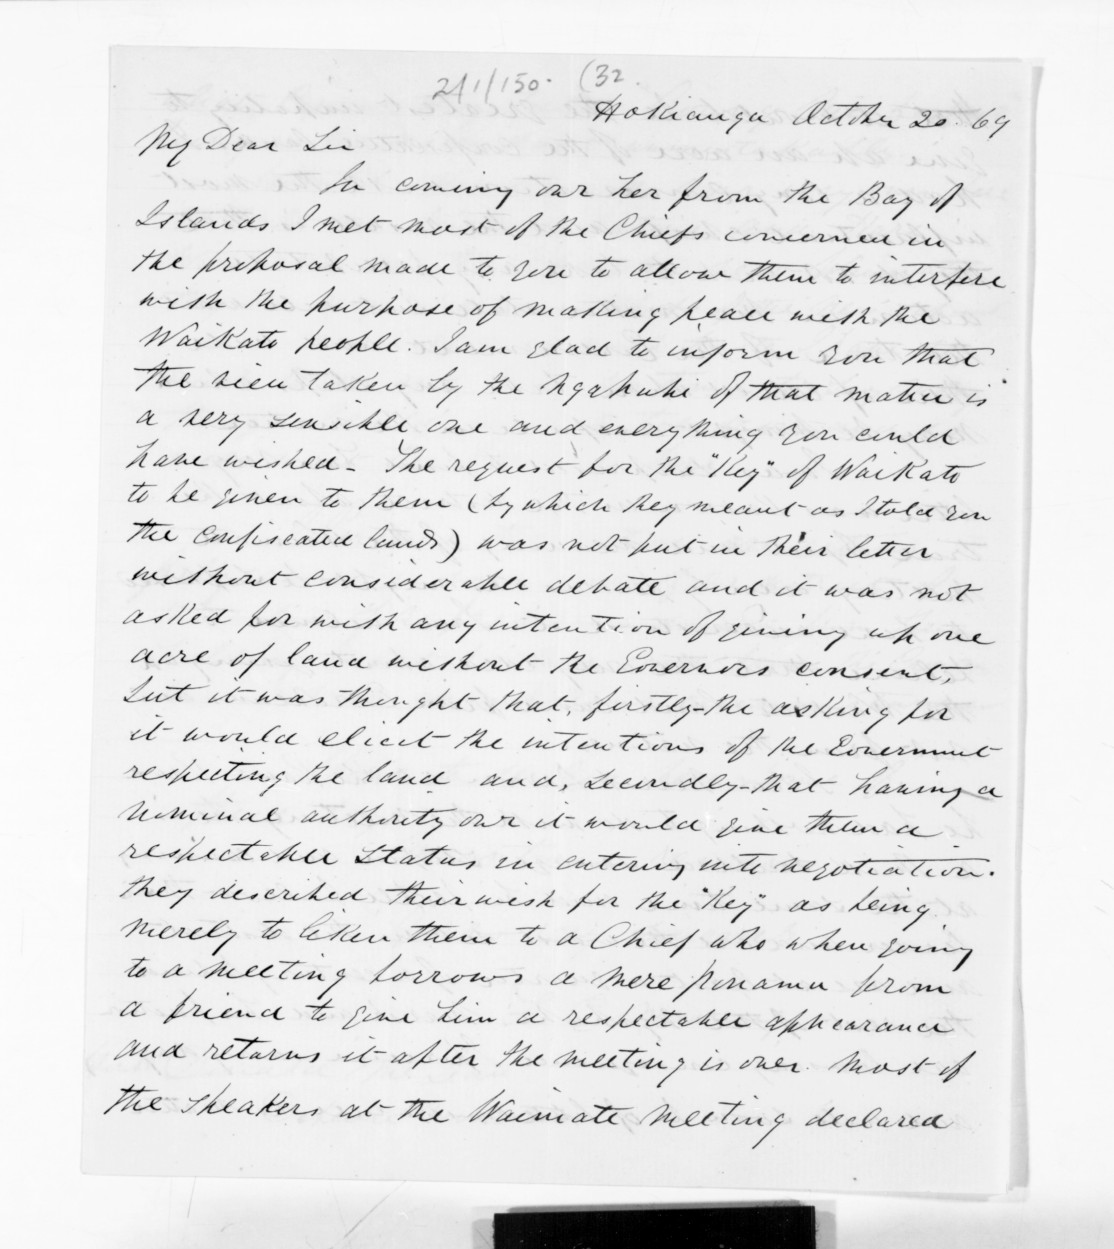 21/1/150. (32.
Hokianga October 20 69
My Dear Sir
In coming over her from the Bay of
Islands I met most of the Chiefs concerned in
the proposal made to you to allow them to interfere
with the purpose of making peace with the
Waikato people. I am glad to inform you that
the view taken by the Ngapuhi of that matter is
a very sensible one and everything you could
have wished - The request for the "Key" of Waikato
to be given to them (by which they meant as I told you
the confiscated lands) was not put in their letter
without considerable debate and it was not
asked for with any intention of giving up one
acre of land without the Governors consent,
but it was thought that, firstly - the asking for
it would elicit the intentions of the Government
respecting the land and, secondly - that having a
nominal authority over it would give them a
respectable status in entering into negotiation.
they described their wish for the "Key" as being
merely to liken them to a Chief who when going
to a meeting borrows a mere ponamu from
a friend to give him a respectable appearance
and returns it after the meeting is over. Most of
the speakers at the Waimate meeting declared